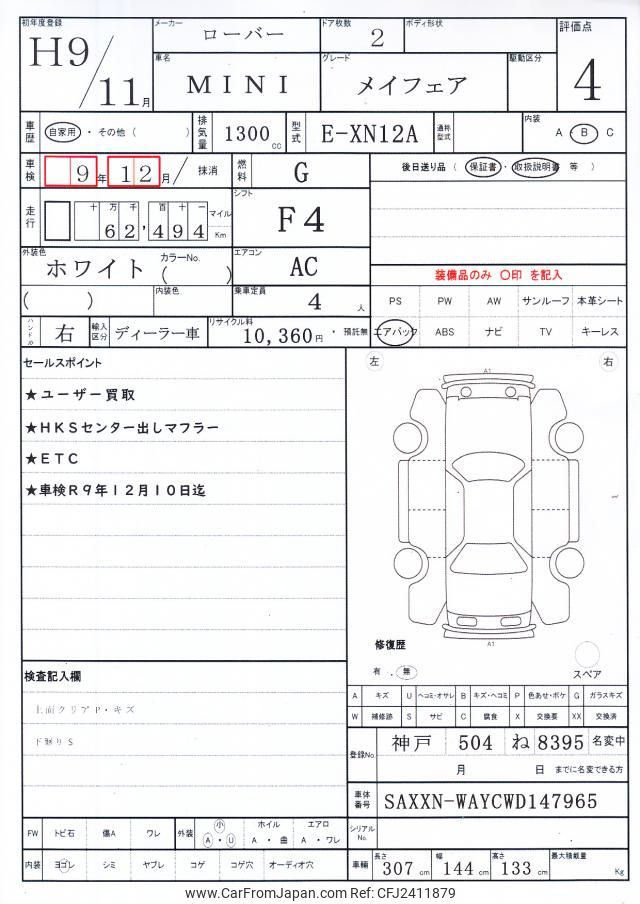 初年度登録 メーカー ローバー ドア枚数 2 ボディ形状 評価点
H9/11月 車名 MINI グレード メイフェア 駆動区分 4
車歴 自家用 ・ その他 ( ) 排気量 1300cc 型式 E-XN12A 通称型式 内装 A・B C
車検 9年 12月 / 抹消 燃料 G 後日送り品 ( 保証書 ・ 取扱説明書 等 )
走行 十 万 千 百 十 一 マイル Km 62,494 シフト F4
外装色 ホワイト カラーNo. ( ) エアコン AC 装備品のみ 〇印 を記入
( ) 内装色 乗車定員 4人 PS PW AW サンルーフ 本革シート
ハンドル 右 輸入区分 ディーラー車 リサイクル料 10,360円 ・ 預託無 エアバック ABS ナビ TV キーレス
セールスポイント 左 右
★ユーザー買取 A1
★HKSセンター出しマフラー
★ETC
★車検R9年12月10日迄
A1
修復歴
有 . 無 スペア
検査記入欄
A キズ U ヘコミ・オサレ B キズ・ヘコミ P 色あせ・ボケ G ガラスキズ
上面クリアP・キズ
W 補修跡 S サビ C 腐食 X 交換要 XX 交換済
下廻りS
登録No. 神戸 504 ね 8395 名変中
月 日 までに名変できる方
車体番号 SAXXN-WAYCWD147965
FW トビ石 傷A ワレ 外装 小 A ・ U ホイル A ・ 曲 エアロ A ・ ワレ シリアルNo.
内装 ヨゴレ シミ ヤブレ コゲ コゲ穴 オーディオ穴 車輛 長さ 307cm 幅 144cm 高さ 133cm 最大積載量 Kg
www.CarFromJapan.com Ref: CFJ2411879